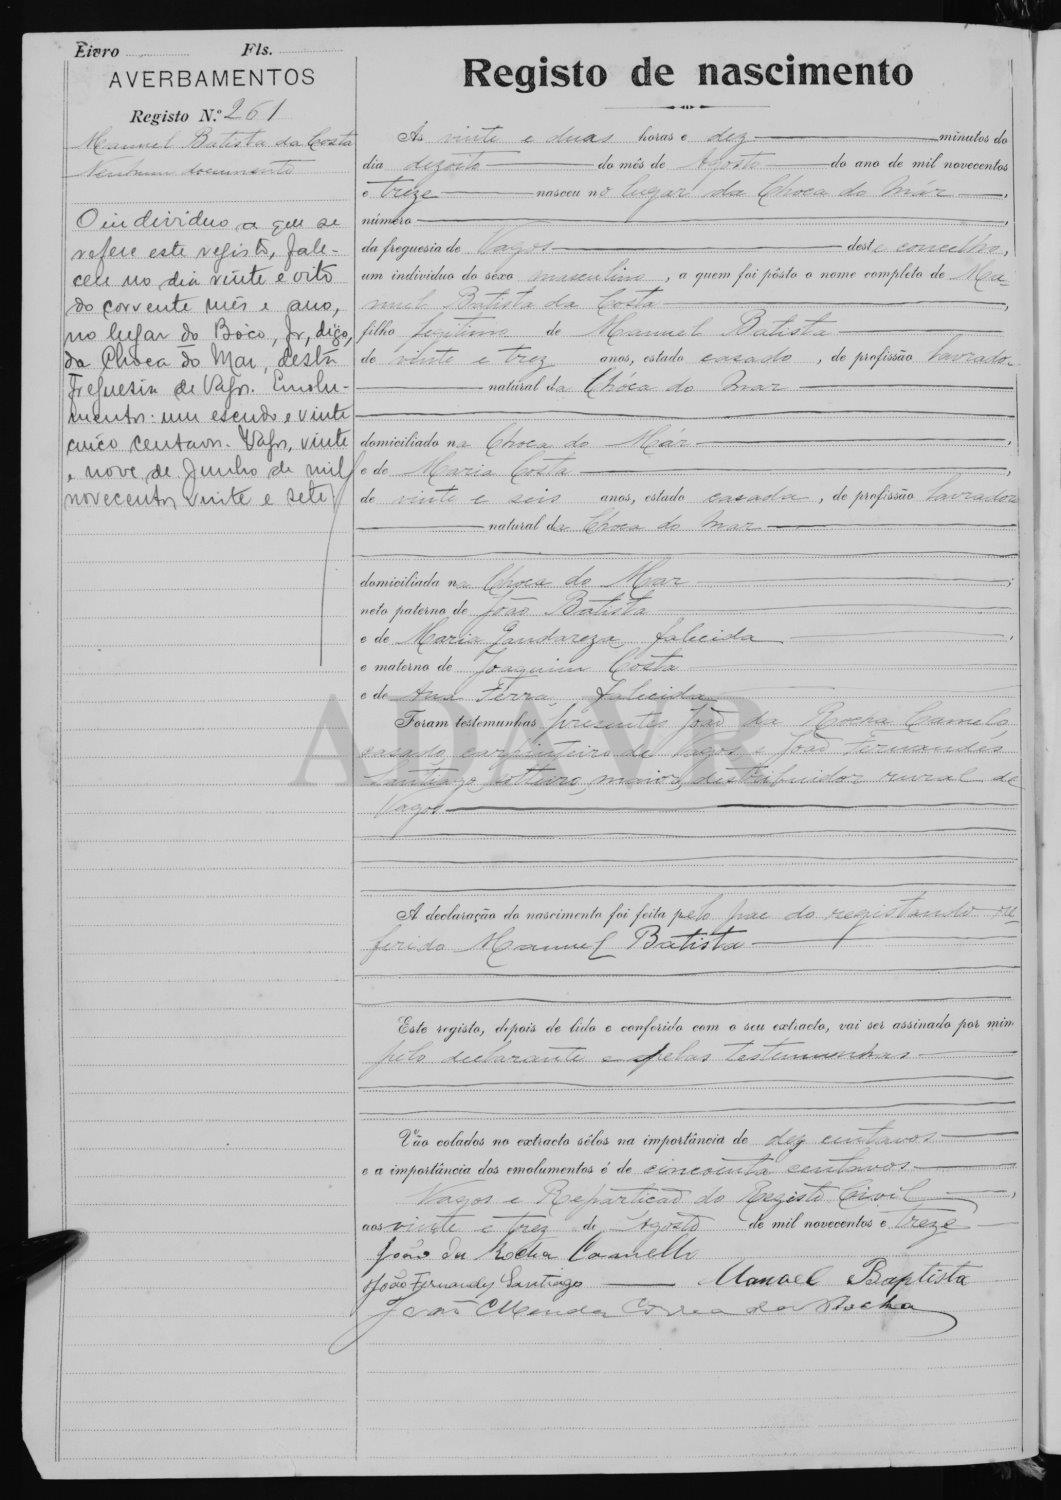 Livro Fls.
AVERBAMENTOS
Registo N.º 261
Manuel Batista da Costa
Nenhum documento
O individuo a que se
refere este registo, fale-
ceu no dia vinte e oito
do corrente mês e ano,
no lugar do Bôco, Jr, digo,
da Choca do Mar, desta
Freguesia de Vagos. Emolu-
mentos: um escudo e vinte
cinco centavos. Vagos, vinte
e nove de Junho de mil
novecentos vinte e sete
Registo de nascimento
Às vinte e duas horas e dez minutos do
dia dezoito do mês de Agosto do ano de mil novecentos
e treze nasceu no lugar da Choca do Már,
número
da freguesia de Vagos deste concelho,
um individuo do sexo masculino, a quem foi pôsto o nome completo de Ma-
nuel Batista da Costa,
filho legitimo de Manuel Batista
de vinte e trez anos, estado casado, de profissão lavrador
natural da Chóca do Mar
domiciliado na Choca do Már,
e de Maria Costa,
de vinte e seis anos, estado casada, de profissão lavradora
natural da Choca do Mar
domiciliada na Choca do Mar;
neto paterno de João Batista
e de Maria Gandareza, falecida,
e materno de Joaquim Costa
e de Ana Ferra, falecida
Foram testemunhas presentes João da Rocha Camelo,
casado, carpinteiro de Vagos e João Fernandes
Santiago solteiro, maior, destribuidor rural de
Vagos
ADAVR
A declaração do nascimento foi feita pelo pae do registando re-
ferido Manuel Batista
Este registo, depois de lido e conferido com o seu extracto, vai ser assinado por mim
pelo declarante e pelas testemunhas
Vão colados no extracto sêlos na importância de dez centavos
e a importância dos emolumentos é de cincoenta centavos
Vagos e Repartição do Registo Civil,
aos vinte e trez de Agosto de mil novecentos e treze
João da Rocha Camello
João Fernandes Santiago Manoel Baptista
João Mendes Correa da Rocha